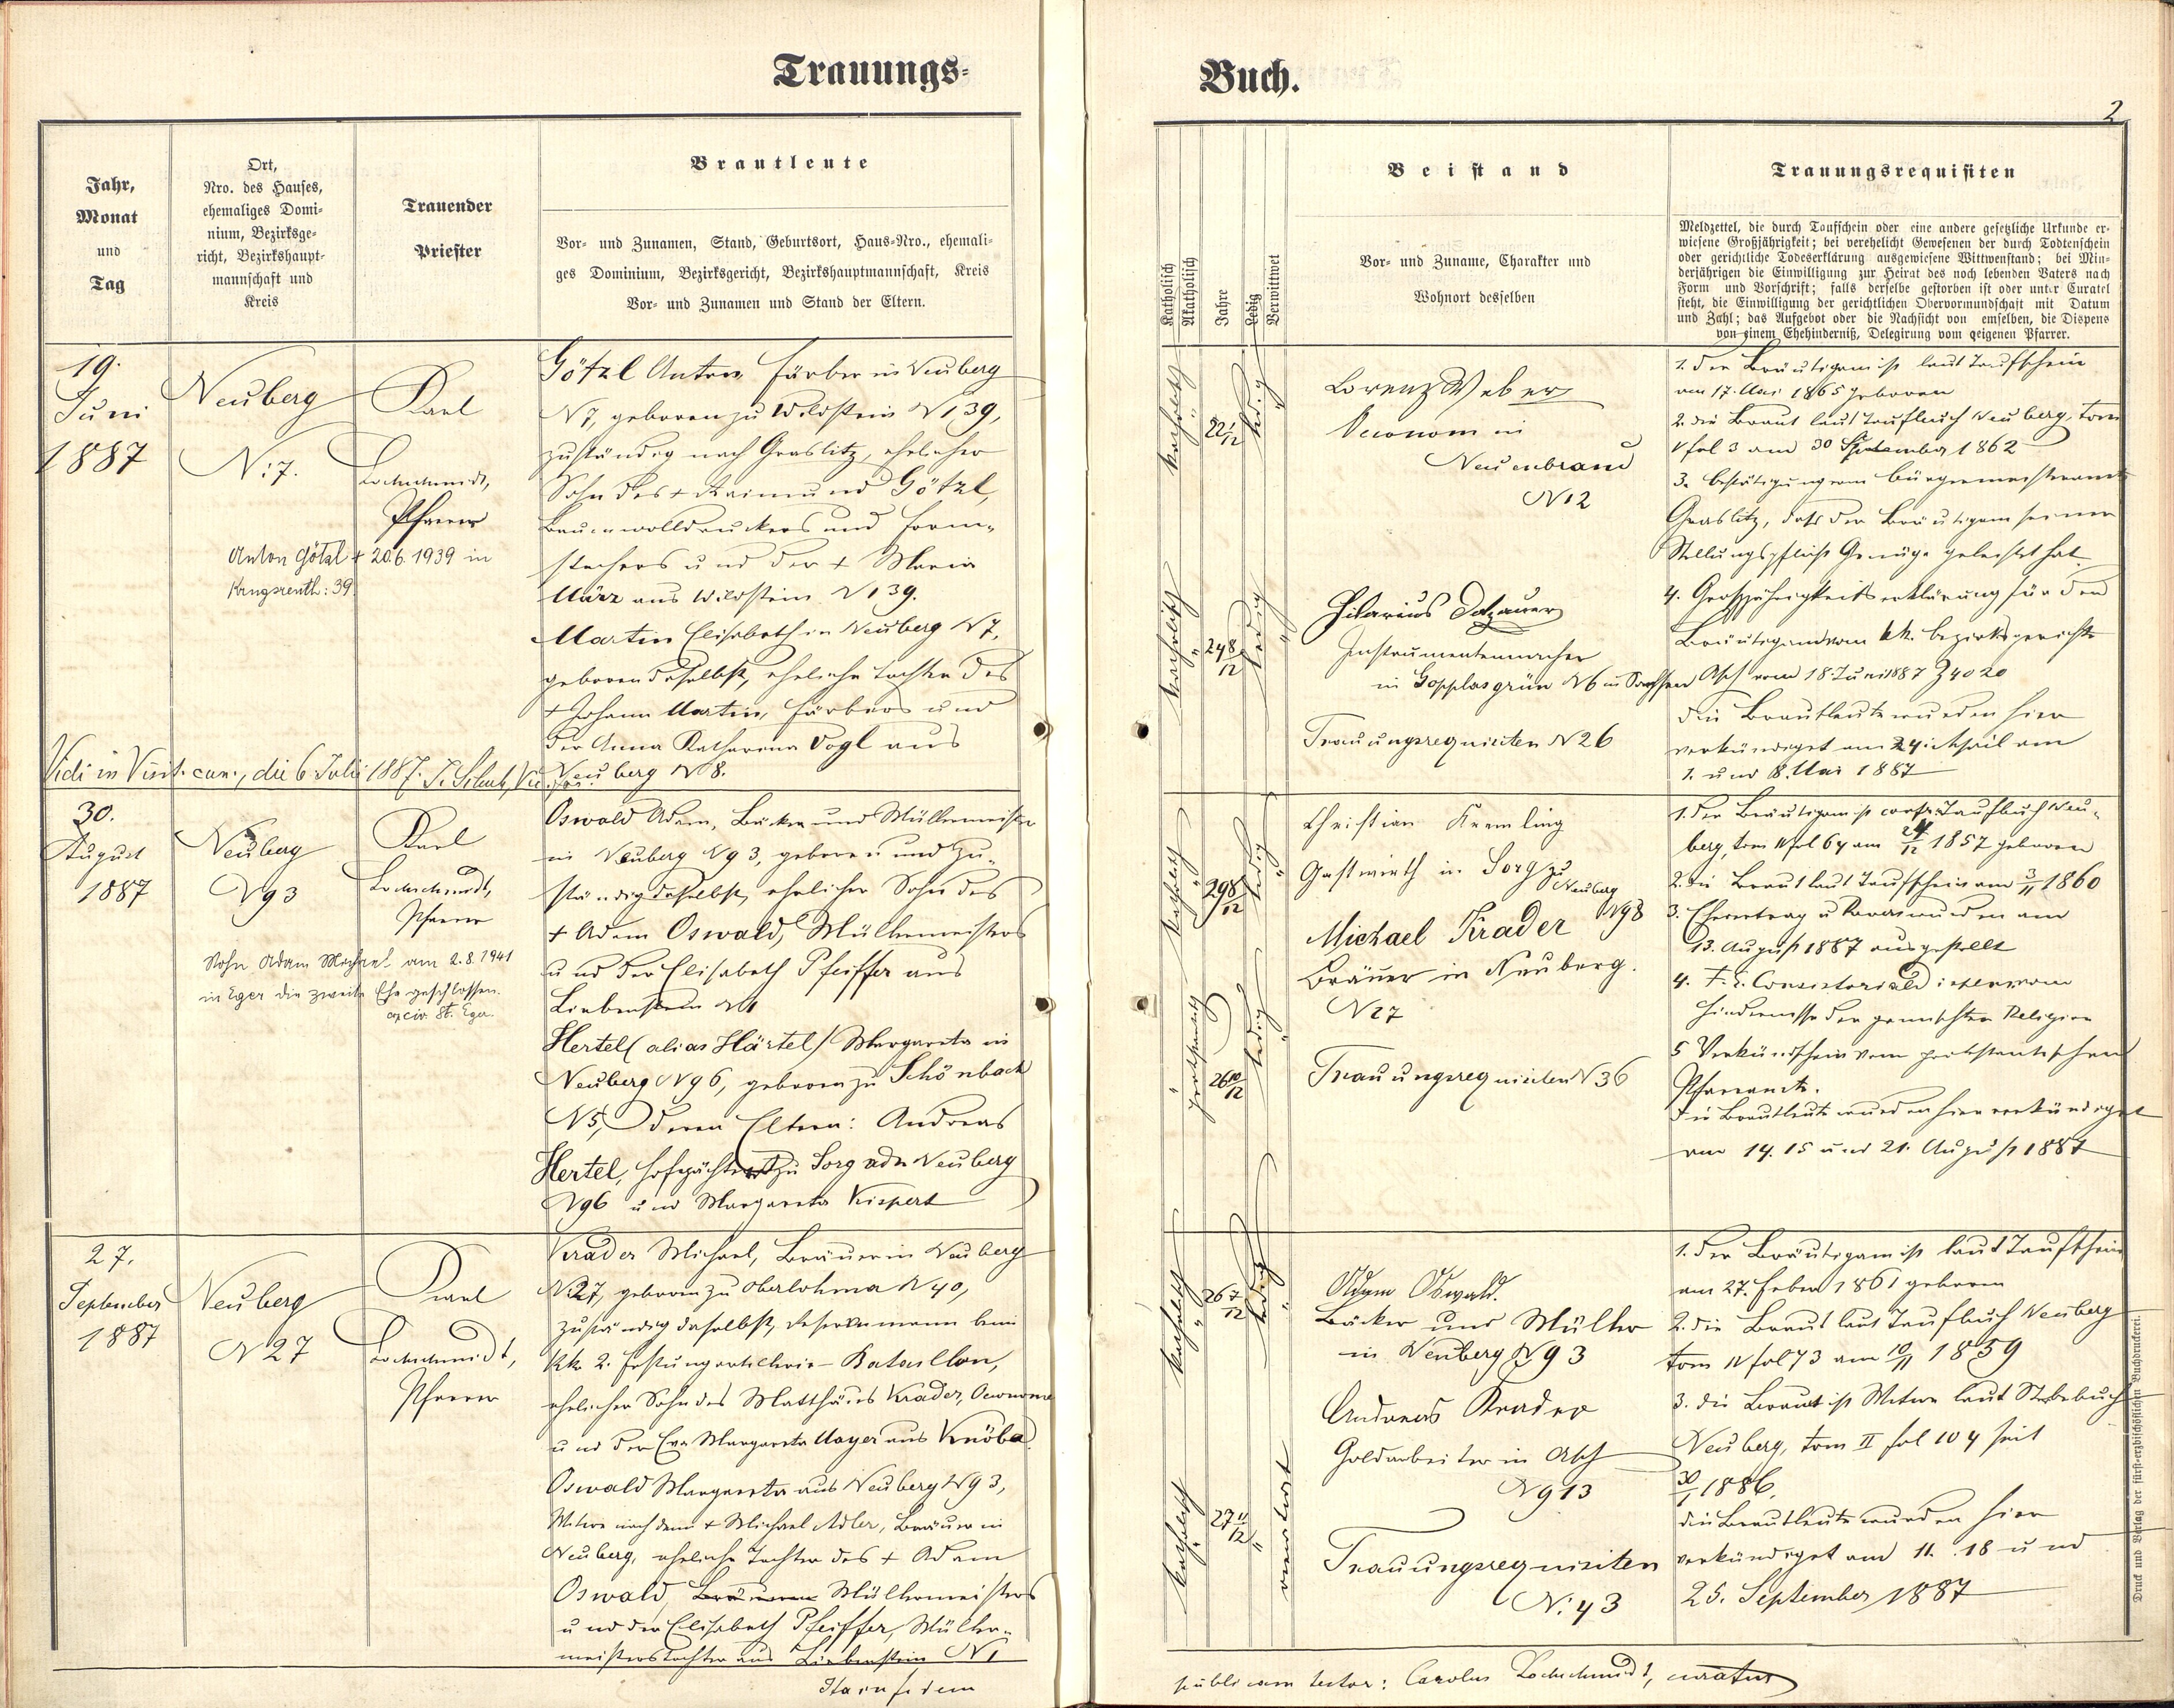 Trauungs-
Buch.
2
Jahr,
Monat
und
Tag
Ort,
Nro. des Hauses,
ehemaliges Domi-
nium, Bezirksge-
richt, Bezirkshaupt-
mannschaft und
Kreis
Trauender
Priester
Brautleute
Vor- und Zunamen, Stand, Geburtsort, Haus-Nro., ehemali-
ges Dominium, Bezirksgericht, Bezirkshauptmannschaft, Kreis
Vor- und Zunamen und Stand der Eltern.
Katholisch
Akatholisch
Jahre
Ledig
Verwittwet
Beistand
Vor- und Zuname, Charakter und
Wohnort desselben
Trauungsrequisiten
Meldzettel, die durch Taufschein oder eine andere gesetzliche Urkunde er-
wiesene Großjährigkeit; bei verehelicht Gewesenen der durch Todtenschein
oder gerichtliche Todeserklärung ausgewiesene Wittwenstand; bei Min-
derjährigen die Einwilligung zur Heirat des noch lebenden Vaters nach
Form und Vorschrift; falls derselbe gestorben ist oder unter Curatel
steht, die Einwilligung der gerichtlichen Obervormundschaft mit Datum
und Zahl; das Aufgebot oder die Nachsicht von emselben, die Dispens
von einem Ehehinderniß, Delegirung vom eigenen Pfarrer.
19.
Juni
1887
Neuberg
N: 7.
Karl
Lochschmidt,
Pfarrer
Anton Götzl + 20.6.1939 in
Götzl Anton, Färber in Neuberg
N 7, geboren zu Wildstein N 139,
zuständig nach Graslitz, ehelicher
Sohn des + Raimund Götzl,
Baumwolldruckers und Form-
stechers und der + Maria
März aus Wildstein N 139.
Martin Elisabeth in Neuberg N 7,
geboren daselbst, eheliche Tochter des
+ Johann Martin, Färbers und
der Anna Katharina Vogl aus
Neuberg N 8.
Vidi in Visit. can., die 6 Julii 1887.
katholisch
22 1/12
ledig
katholisch
24 8/12
ledig
Lorenz Weber
Oeconom in
Neuenbrand
N 12
Hilarius Dotzauer
Instrumentenmacher
in Gopplasgrün N 6 in Sachsen
Trauungsrequisiten N 26
1. der Bräutigam ist laut Taufschein
am 17. Mai 1865 geboren
2. die Braut laut Taufbuch Neuberg, tom
V fol 3 am 30 September 1862
3. Bestätigung vom Bürgermeisteramt
Graslitz, dass der Bräutigam seiner
Stellungspflicht Genüge geleistet hat.
4. Grossjährigkeitserklärung für den
Bräutigam vom kk. Bezirksgerichte
Asch vom 18. Juni 1887 Z 4020
die Brautleute wurden hier
verkündiget am 24. April am
1. und 8. Mai 1887
30.
August
1887
Neuberg
N 93
Karl
Lochschmidt,
Pfarrer
Sohn Adam Michael am 2.8.1941
in Eger die zweite Ehe geschlossen.
Oswald Adam, Bäcker und Müllermeister
in Neuberg N 93, geboren und zu-
ständig daselbst, ehelicher Sohn des
+ Adam Oswald, Müllermeisters
und der Elisabeth Pfeiffer aus
Liebenstein N 1
Hertel (alias Härtel) Margareta in
Neuberg N 96, geboren zu Schönbach
N 5, deren Eltern: Andreas
Hertel, Hofpächter zu Sorg oder Neuberg
N 96 und Margareta Kispert
katholisch
29 8/12
ledig
protestantisch
26 10/12
ledig
Christian Kremling
Gastwirth in Sorg zu
Neuberg
N 98
Michael Krader
Bräuer in Neuberg.
N 27
Trauungsrequisiten N 36
1. der Bräutigam ist Taufbuch Neu-
berg, tom fol 64 am 24/12 1857 geboren
2. die Braut laut Taufschein am 3/11 1860
3. Ehevertrag u Reverse wurden am
13. August 1887 ausgestellt
4. F. E. Consistorial vom
Hindernisse der gemischten Religion
5 Verkündschein vom protestantischen
Pfarramte.
die Brautleute wurden hier verkündiget
am 14. 15 und 21. August 1887
27.
September
1887
Neuberg
N 27
Karl
Lochschmidt,
Pfarrer
Krader Michael, Bräuer in Neuberg
N 27, geboren zu Oberlohma N 40,
zuständig daselbst, Reservemann beim
kk. 2. Festungsartillerie-Bataillon,
ehelicher Sohn des Matthäus Krader, Oeconoms
und der Eva Margareta Mayer aus Knöba
Oswald Margareta aus Neuberg N 93,
Witwe nach dem + Michael Adler, Bräuer in
Neuberg, eheliche Tochter des + Adam
Oswald, Müllermeisters
und der Elisabeth Pfeiffer, Müller-
meisterstochter aus Liebenstein N 1
katholisch
26 7/12
ledig
katholisch
27 11/12
verwitwet
Adam Oswald.
Bäcker und Müller
in Neuberg N 93
Andreas Krader
Goldarbeiter in Asch
N 913
Trauungsrequisiten
N: 43
1. der Bräutigam ist laut Taufschein
am 27. Feber 1861 geboren
2. die Braut laut Taufbuch Neuberg
tom IV fol 73 am 10/11 1859
3. die Braut ist Witwe laut Sterbebuch
Neuberg, tom II fol 104 seit
30/1 1886.
die Brautleute wurden hier
verkündiget am 11. 18 und
25. September 1887
Ita in fidem
publicam testor: Carolus Lochschmidt, curatus
Druck und Verlag der fürst-erzbischöflichen Buchdruckerei.